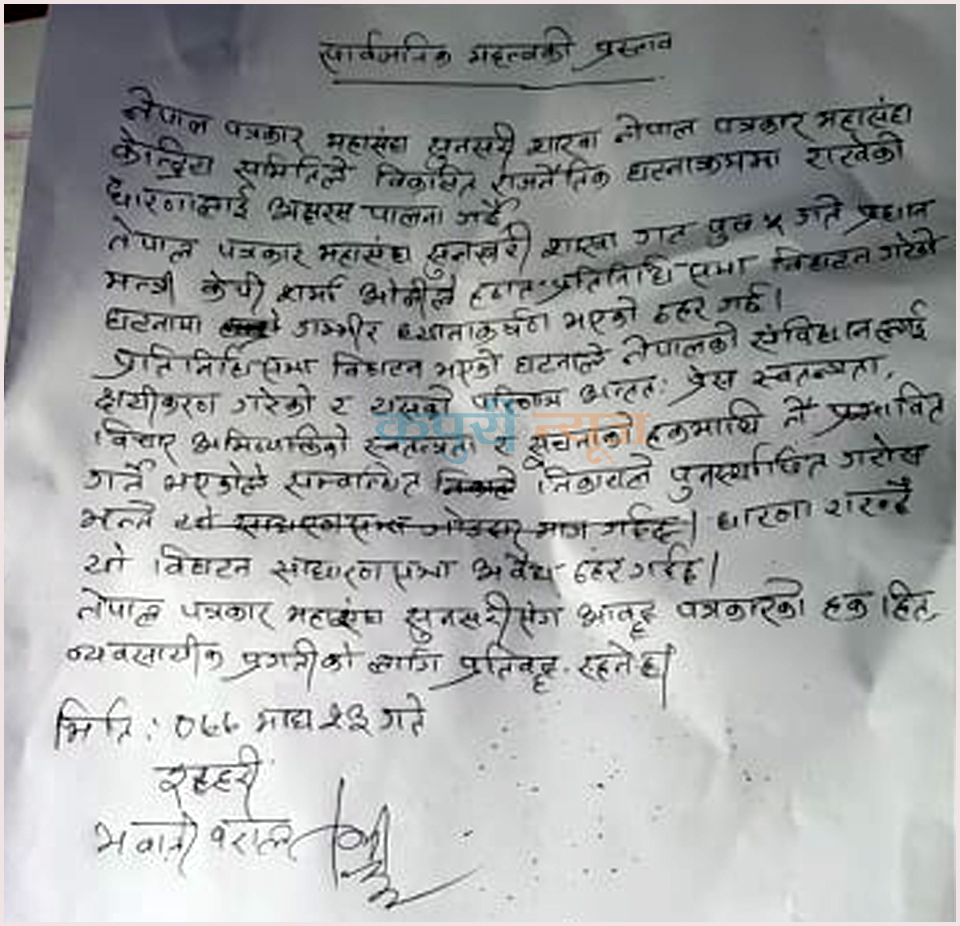 सार्वजनिक महत्वको प्रस्ताव
नेपाल पत्रकार महासंघ सुनसरी शाखा नेपाल पत्रकार महासंघ
केन्द्रिय समितिले विकसित राजनैतिक घटनाक्रममा राखेको
धारणालाई अक्षरस पालना गर्दै
नेपाल पत्रकार महासंघ सुनसरी शाखा गत पुष ५ गते प्रधान
मन्त्री केपी शर्मा ओलीले हठात प्रतिनिधि सभा विघटन गरेको
घटनामा गम्भीर ध्यानाकर्षण भएको ठहर गर्छ।
प्रतिनिधि सभा विघटन भएको घटनाले नेपालको संविधानलाई
क्षयीकरण गरेको र यसको परिणाम अन्तत: प्रेस स्वतन्त्रता,
विचार अभिव्यक्तिको स्वतन्त्रता र सूचनाको हकमाथि नै प्रभावित
गर्ने भएकोले सम्बन्धित निकायले पुनर्स्थापित गरोस
भन्ने यो साधारण सभा माग गर्दछ। धारणा राख्दै
यो विघटन साधारण सभा अवैध ठहर गर्दछ।
नेपाल पत्रकार महासंघ सुनसरीसंग आवद्ध पत्रकारको हक हित
व्यवसायीक प्रगतीको लागि प्रतिवद्ध रहनेछ।
मिति : ०७७ माघ २३ गते
भवानी बराल
कपुरी न्यूज